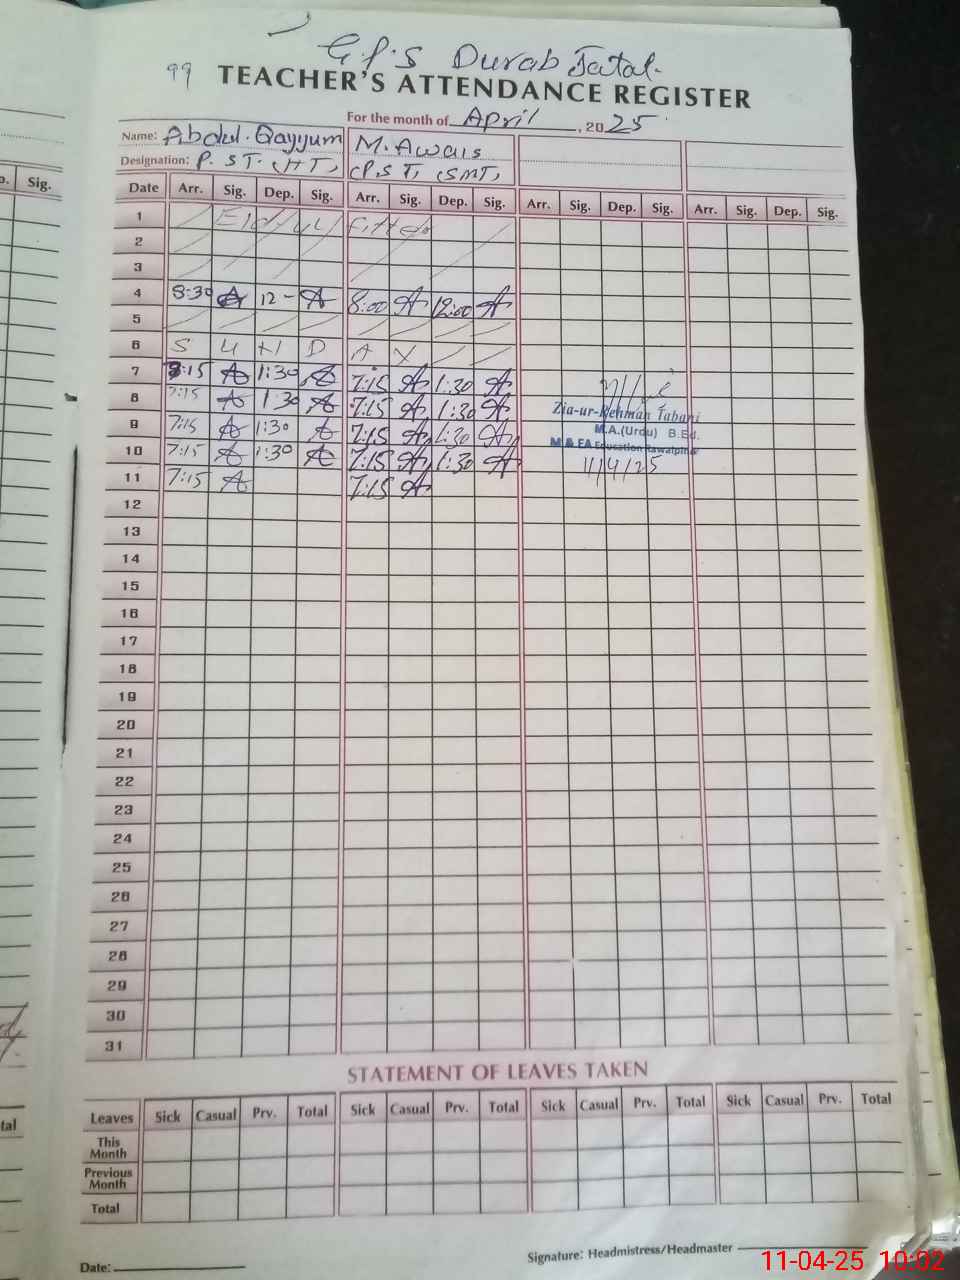 G.P.S Durab Jatal.
99
TEACHER'S ATTENDANCE REGISTER
For the month of April, 2025
Name: Abdul Qayyum M. Awais
Designation: P.ST.(HT) (P.ST, (SMT)
o. Sig.
Date Arr. Sig. Dep. Sig. Arr. Sig. Dep. Sig. Arr. Sig. Dep. Sig. Arr. Sig. Dep. Sig.
1 Eid-ul Fitter
2
3
4 8:30 12- 8:00 12:00
5
6 S U N D A Y
7 7:15 1:30 7:15 1:30
8 7:15 1:30 7:15 1:30
Zia-ur-Rehman Tabani
9 7:15 1:30 7:15 1:30 M.A.(Urdu) B.Ed.
10 7:15 1:30 7:15 1:30 M & EA Education Rawalpindi
11/4/25
11 7:15 7:15
12
13
14
15
16
17
18
19
20
21
22
23
24
25
26
27
28
29
30
31
STATEMENT OF LEAVES TAKEN
Leaves Sick Casual Prv. Total Sick Casual Prv. Total Sick Casual Prv. Total Sick Casual Prv. Total
tal
This Month
Previous Month
Total
Date: Signature: Headmistress/Headmaster
11-04-25 10:02